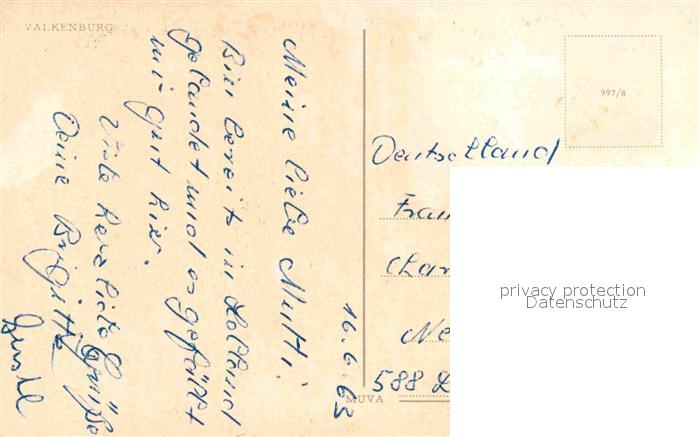 VALKENBURG
16.6.63
Meine liebe Mutti!
Bin bereits in Holland
gelandet und es gefällt
mir gut hier.
Viele herzliche Grüße
Deine Brigitte
997/8
Deutschland
588 L
MUVA
privacy protection
Datenschutz